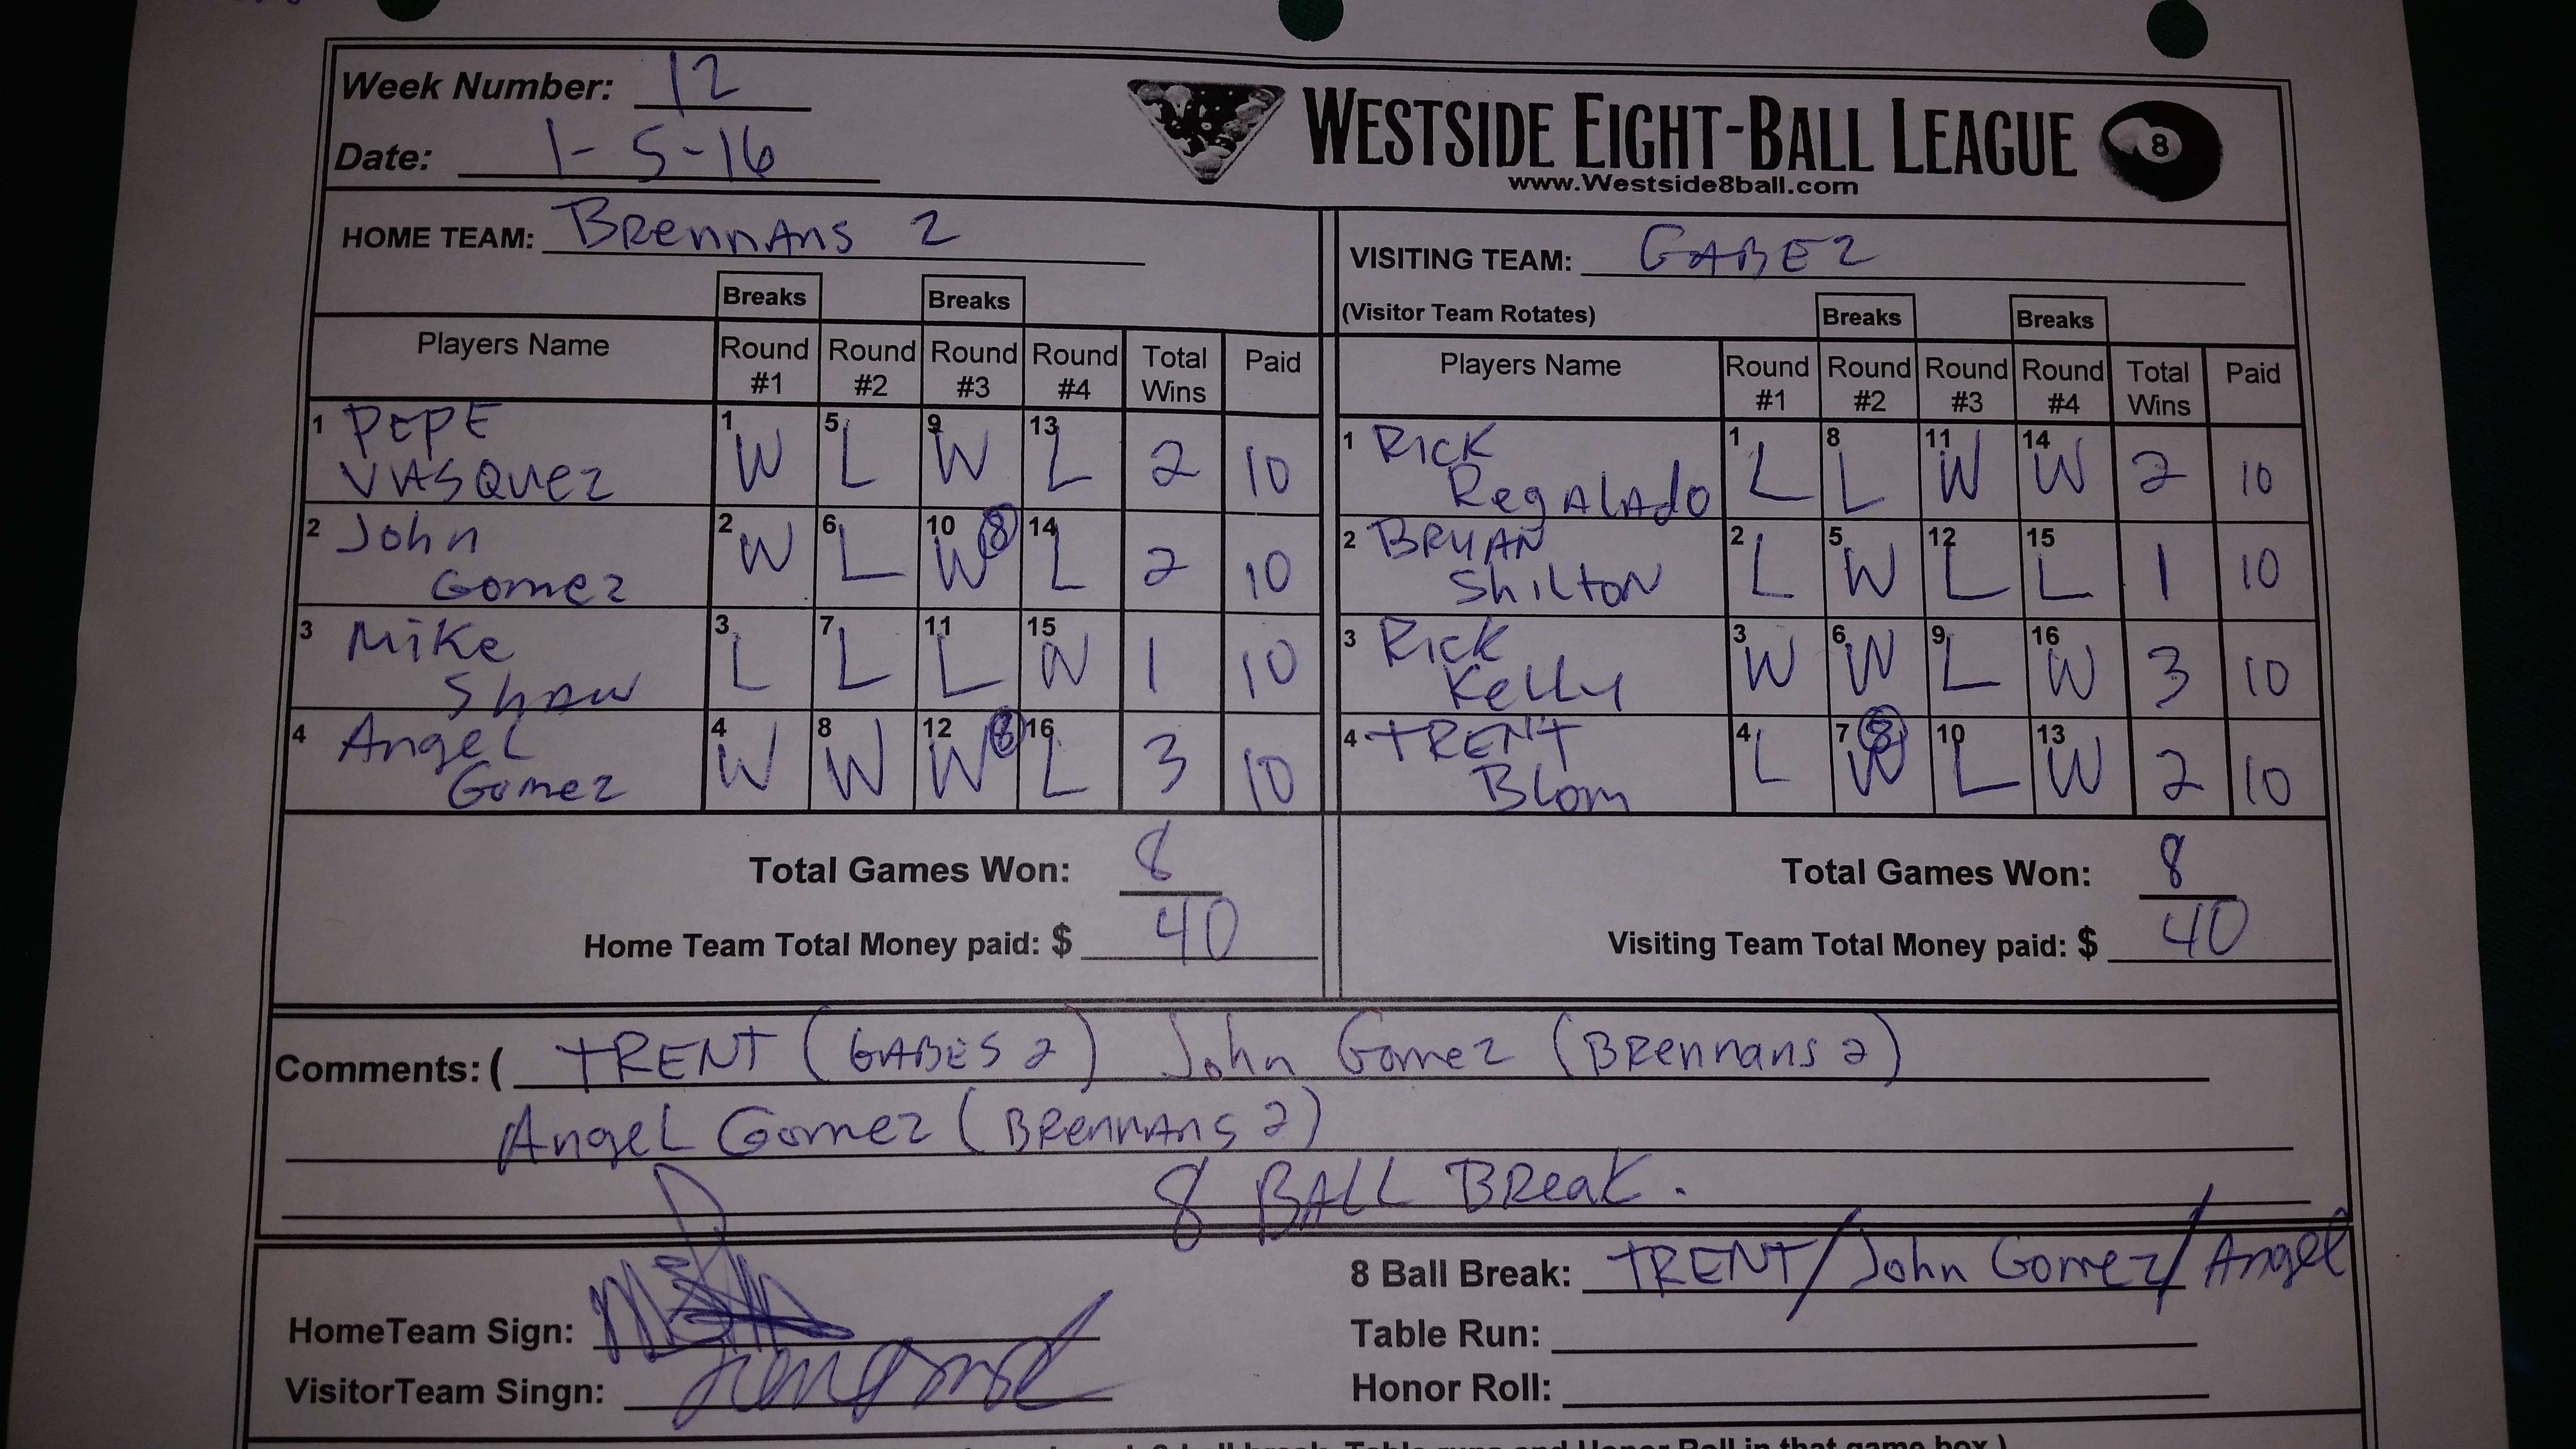 Week Number: 12
Date: 1-5-16
WESTSIDE EIGHT-BALL LEAGUE 8
www.Westside8ball.com
HOME TEAM: BRennAns 2
VISITING TEAM: GABE2
(Visitor Team Rotates)
Breaks Breaks Breaks Breaks
Players Name Round #1 Round #2 Round #3 Round #4 Total Wins Paid
1 PEPE VASQuez 1 W 5 L 9 W 13 L 2 10
2 John Gomez 2 W 6 L 10 W 8 14 L 2 10
3 Mike Shaw 3 L 7 L 11 L 15 W 1 10
4 Angel Gomez 4 W 8 W 12 W 8 16 L 3 10
Players Name Round #1 Round #2 Round #3 Round #4 Total Wins Paid
1 Rick RegALAdo 1 L 8 L 11 W 14 W 2 10
2 BRYAN ShiltoN 2 L 5 W 12 L 15 L 1 10
3 Rick Kelly 3 W 6 W 9 L 16 W 3 10
4 TRENT Blom 4 L 7 W 8 10 L 13 W 2 10
Total Games Won: 8
Home Team Total Money paid: $ 40
Total Games Won: 8
Visiting Team Total Money paid: $ 40
Comments: ( TRENT (GABES 2) John Gomez (BRennans 2)
AngeL Gomez (BRennAns 2)
8 BALL BReak.
8 Ball Break: TRENT/John Gomez/Angel
HomeTeam Sign:
Table Run:
VisitorTeam Singn:
Honor Roll:
8 ball break, Table runs and Honor Roll in that game box.)